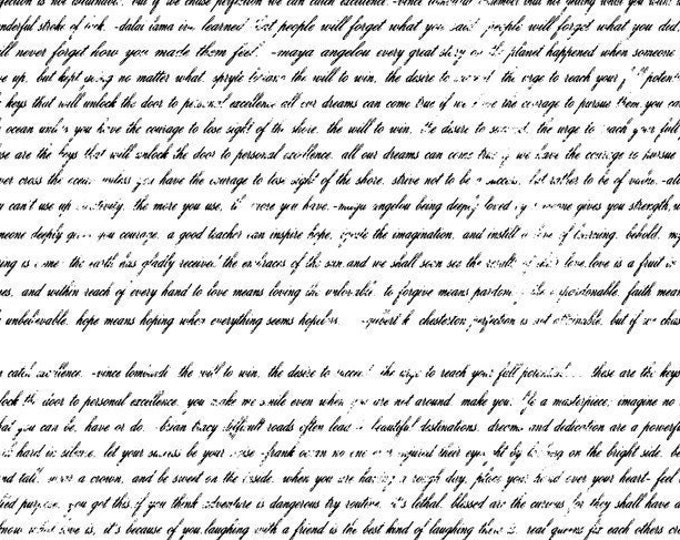 fection is not attainable. but if we chase perfection we can catch excellence. -vince
nderful stroke of luck. -dalai lama ive learned that people will forget what you said. people will forget what you did.
ill never forget how you made them feel. -maya angelou every great story on the planet happened when someone
e up. but kept going no matter what. spryte loriano the will to win. the desire to succeed. the urge to reach your full poten
keys that will unlock the door to personal excellence all our dreams can come true if we have the courage to pursue them. you ca
ocean unless you have the courage to lose sight of the shore. the will to win. the desire to succeed. the urge to reach your full
se are the keys that will unlock the door to personal excellence. all our dreams can come true if we have the courage to pursue
ver cross the ocean unless you have the courage to lose sight of the shore. strive not to be a success. but rather to be of value.
can't use up creativity. the more you use, the more you have. -maya angelou being deeply loved by someone gives you strength,
meone deeply gives you courage. a good teacher can inspire hope. ignite the imagination. and instill a love of learning. behold. my
ing is come the earth has gladly received the embraces of the sun and we shall soon see the results of their love. love is a fruit in
es. and within reach of every hand to love means loving the unlovable. to forgive means pardoning the unpardonable. faith mean
unbelievable. hope means hoping when everything seems hopeless. k. chesterton perfection is not attainable. but if we chas
n catch excellence. -vince lombardi the will to win. the desire to succeed. the urge to reach your full potential these are the keys
lock the door to personal excellence. you make me smile even when you are not around. make your life a masterpiece; imagine no
hat you can be, have or do. -brian tracy difficult roads often lead to beautiful destinations. dreams and dedication are a powerful
k hard in silence. let your success be your noise -frank ocean no one ever injured their eyesight by looking on the bright side. be
and tall. wear a crown. and be sweet on the inside. when you are having a rough day. place your hand over your heart- feel
lled purpose. you got this if you think adventure is dangerous try routine. it's lethal. blessed are the curious for they shall have a
know what love is, it's because of you. laughing with a friend is the best kind of laughing there is. real queens fix each others cro